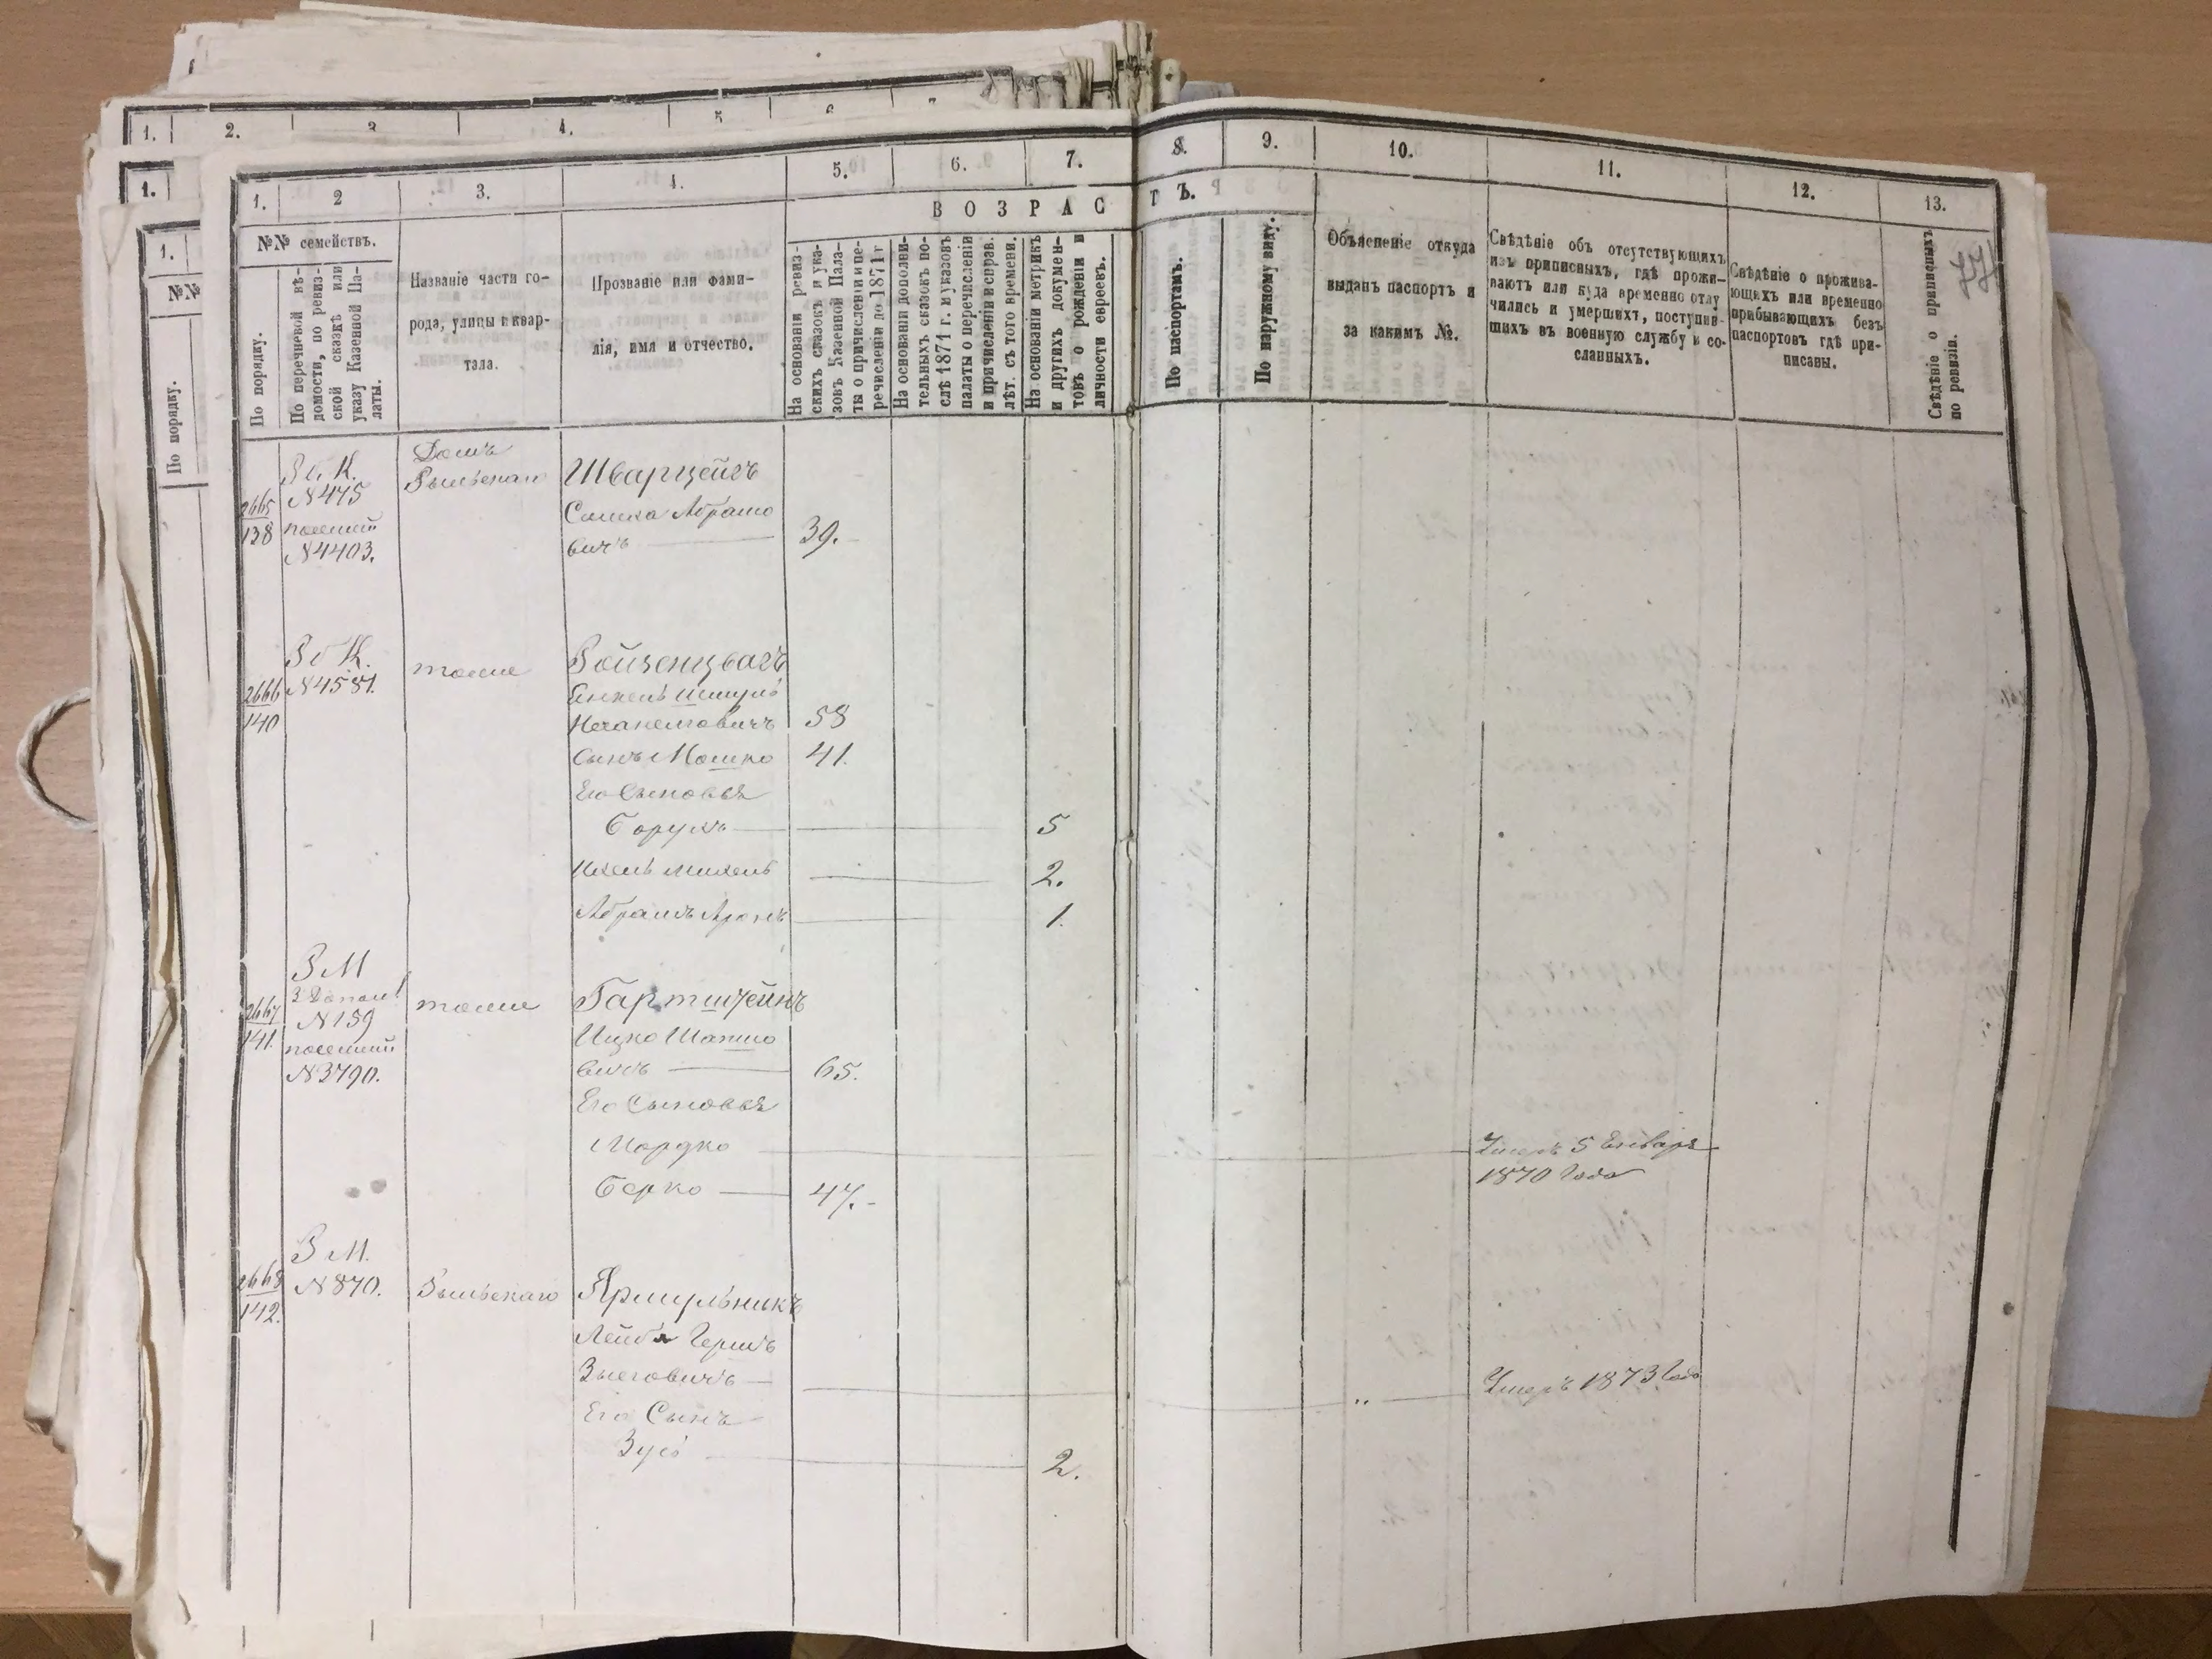 1. 2. 3 4. 5 6 7
1.
1.
№№
По порядку.
1. 2 3. 4. 5. 6. 7. 8. 9. 10. 11. 12. 13.
ВОЗРАСТЪ.
№№ семействъ.
По порядку.
По перечневой вѣ-
домости, по ревиз-
ской сказкѣ или
указу Казенной Па-
латы.
Названіе части го-
рода, улицы и квар-
тала.
Прозваніе или фами-
лія, имя и отчество.
На основаніи ревиз-
скихъ сказокъ и ука-
зовъ Казенной Пала-
ты о причисленіи и пе-
речисленіи до 1871 г
На основаніи дополни-
тельныхъ сказокъ по-
слѣ 1871 г. и указовъ
палаты о перечисленіи
и причисленіи и справ.
лѣт. съ того времени.
На основаніи метрикъ
и другихъ докумен-
товъ о рожденіи и
личности евреевъ.
По паспортамъ.
По наружному виду.
Объясненіе откуда
выданъ паспортъ и
за какимъ №.
Свѣдѣніе объ отсутствующихъ
изъ приписныхъ, гдѣ прожи-
ваютъ или куда временно отлу
чились и умершихъ, поступив-
шихъ въ военную службу и со-
сланныхъ.
Свѣдѣніе о прожива-
ющихъ или временно
прибывающихъ безъ
паспортовъ гдѣ при-
писаны.
Свѣдѣніе о приписныхъ
по ревизіи.
2665
138
N475
N4403.
Домъ
Шварцейгъ
Сошка Абрамо
вичъ 39.
2666
140
N4581.
тоже
Ройзенцвагъ
Енкель Шмуль
58
Сынъ Мошко 41.
Его Сыновья
Борухъ 5
Ихель Михель 2.
Абрамъ Аронъ 1.
2667
141.
Р М
N159
N3790.
тоже
Гартштейнъ
Ицко Шапшо
вичъ 65.
Его Сыновья
Мордко Умеръ 5 Енваря
1870 Года
Берко 47.
2668
142.
Р М.
N870.
Ярмульникъ
Лейба Гершъ
Зусговичъ Умеръ 1873 Года
Его Сынъ
Зусь 2.